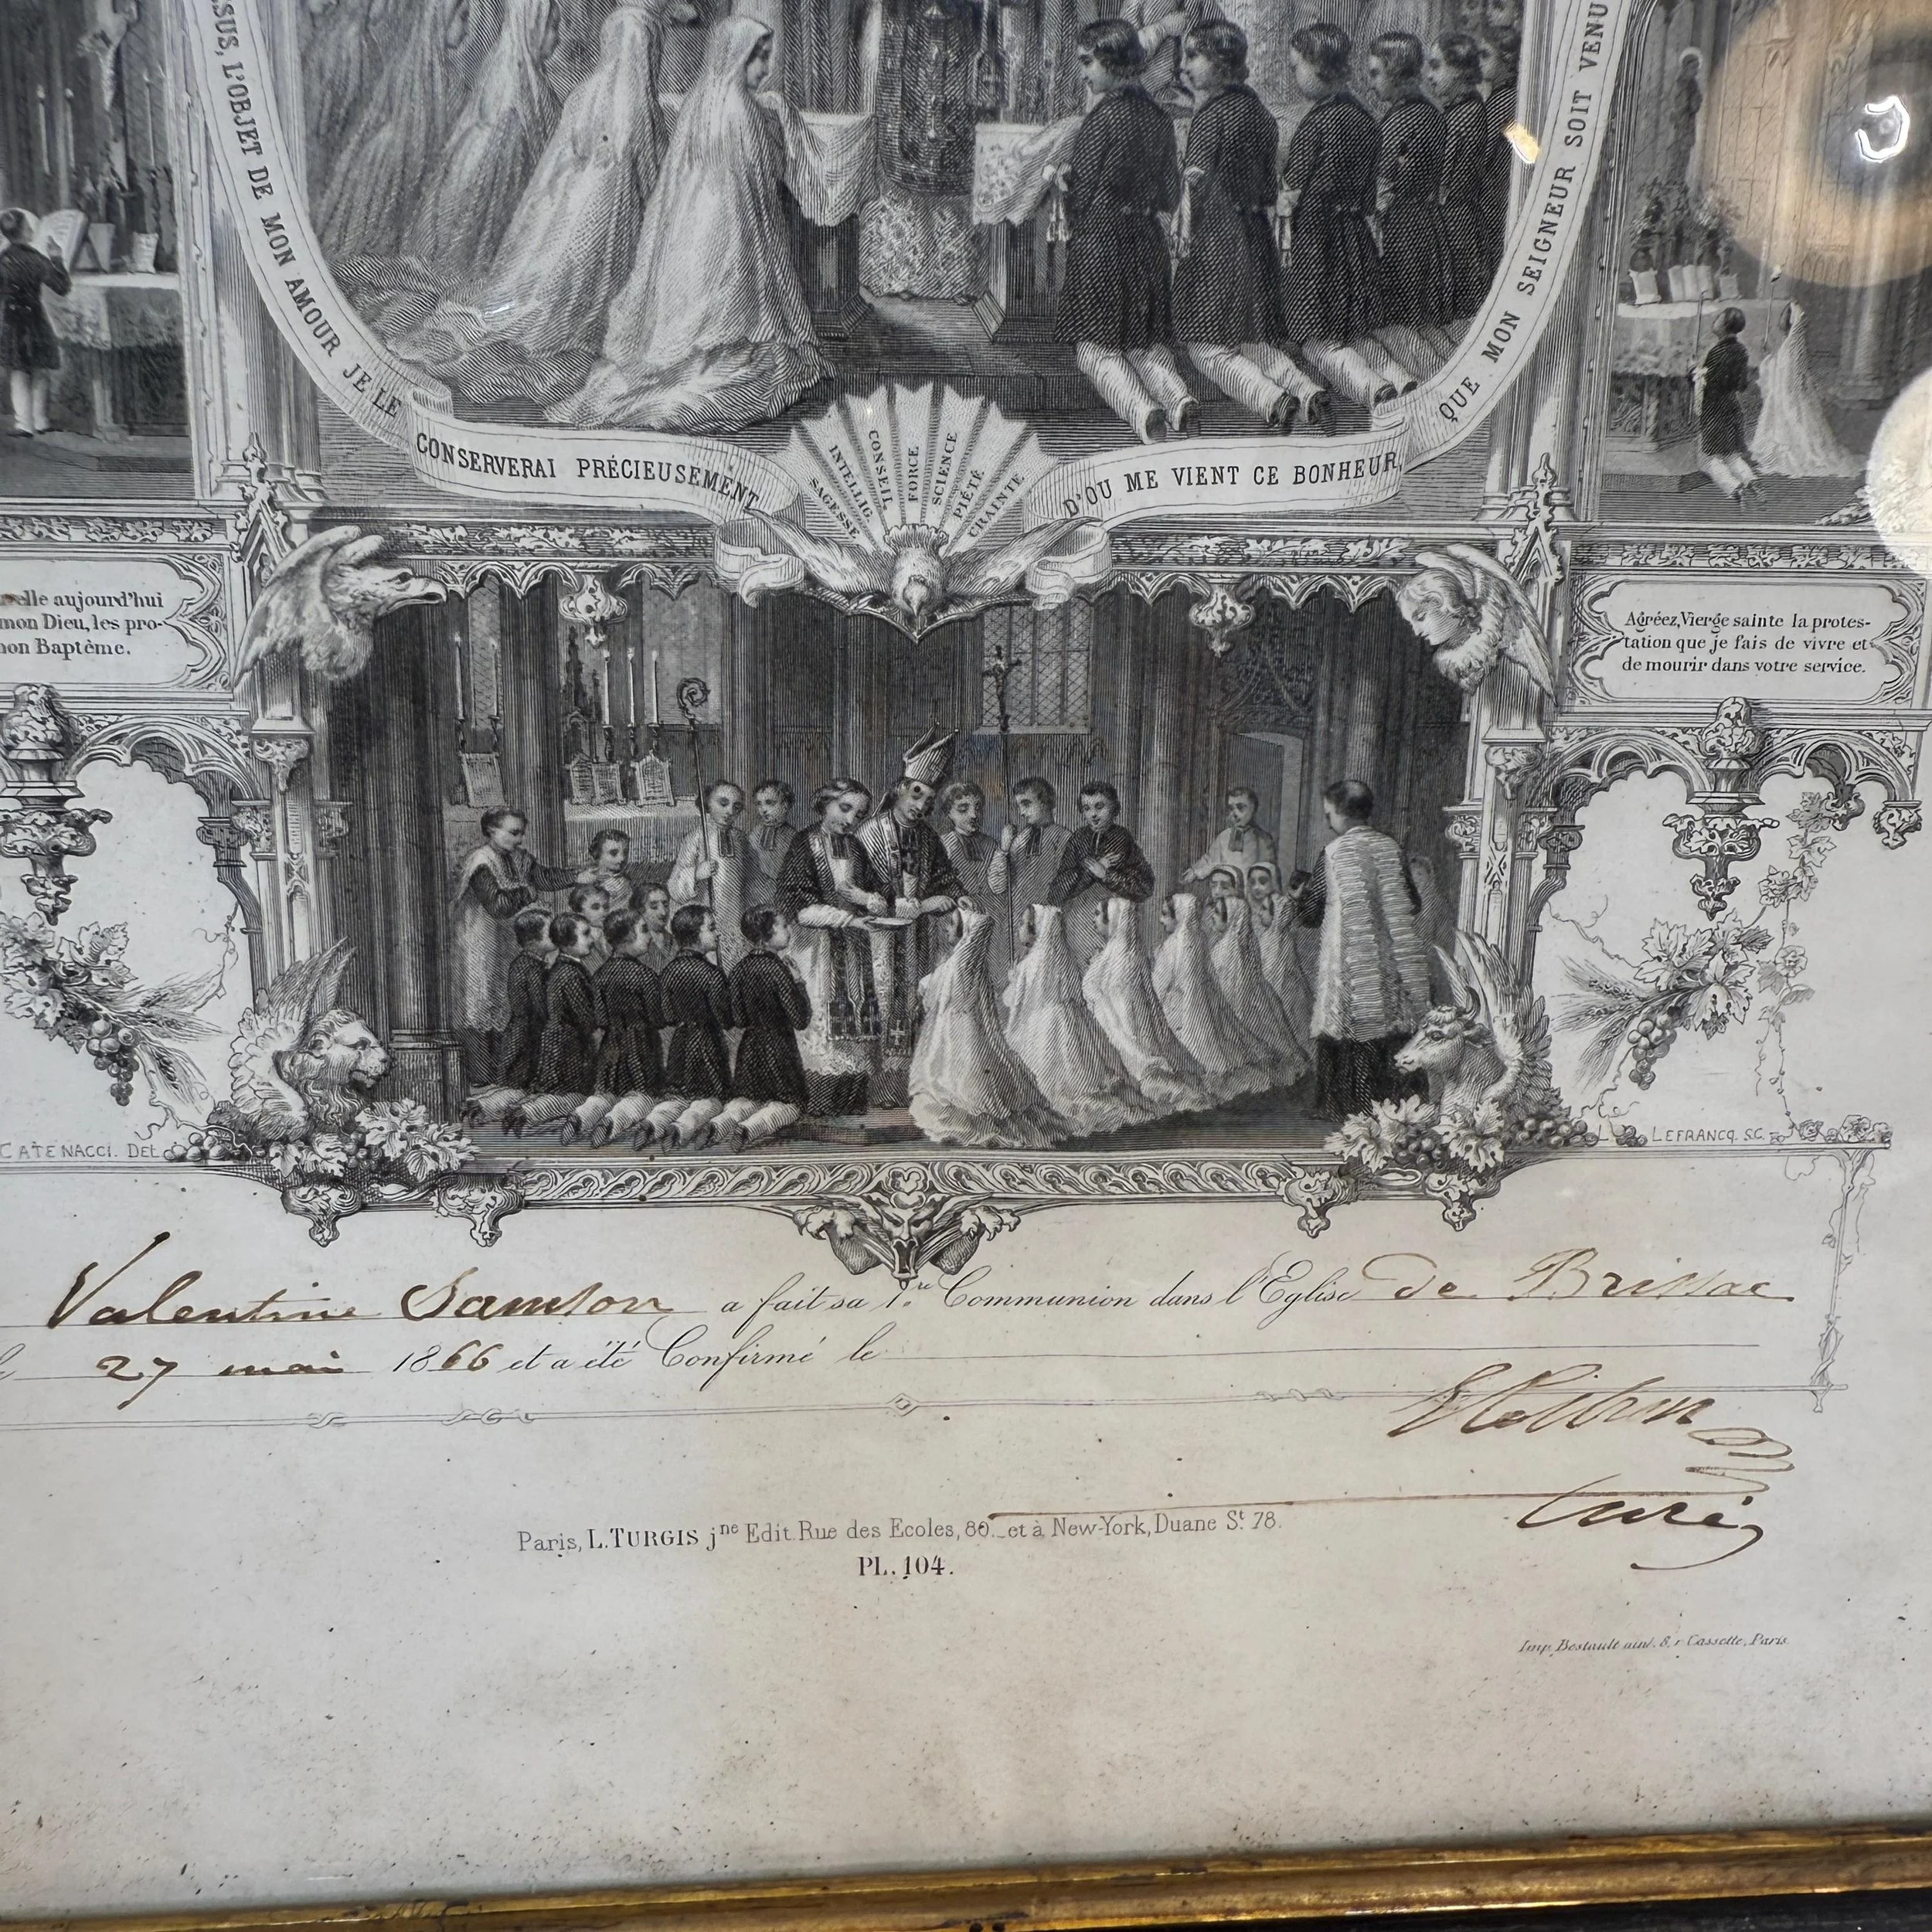 SUS, L'OBJET DE MON AMOUR JE LE
CONSERVERAI PRÉCIEUSEMENT
SAGESSE
INTELLIG.
CONSEIL
FORCE
SCIENCE
PIÉTÉ
CRAINTE
D'OU ME VIENT CE BONHEUR,
QUE MON SEIGNEUR SOIT VENU
elle aujourd'hui
mon Dieu, les pro-
on Baptême.
Agréez, Vierge sainte la protes-
tation que je fais de vivre et
de mourir dans votre service.
CATENACCI. DEL.
LEFRANCQ. SC.
Valentine Samson a fait sa 1.re Communion dans l'Eglise de Brissac
27 mai 1866 et a été Confirmé le
Curé
Paris, L. TURGIS jne Edit. Rue des Ecoles, 80._et à New-York, Duane St. 78.
PL. 104.
Imp. Bostault ainé. 8, r. Cassette, Paris.